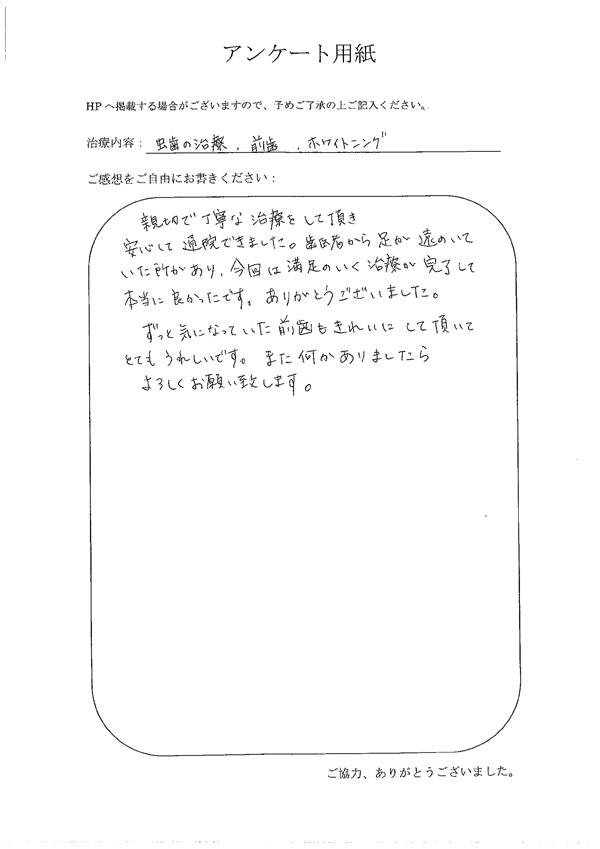 アンケート用紙
HPへ掲載する場合がございますので、予めご了承の上ご記入ください。
治療内容：虫歯の治療、前歯、ホワイトニング
ご感想をご自由にお書きください：
親切で丁寧な治療をして頂き
安心して通院できました。歯医者から足が遠のいて
いた所があり、今回は満足のいく治療が完了して
本当に良かったです。ありがとうございました。
ずっと気になっていた前歯もきれいにして頂いて
とてもうれしいです。また何かありましたら
よろしくお願い致します。
ご協力、ありがとうございました。